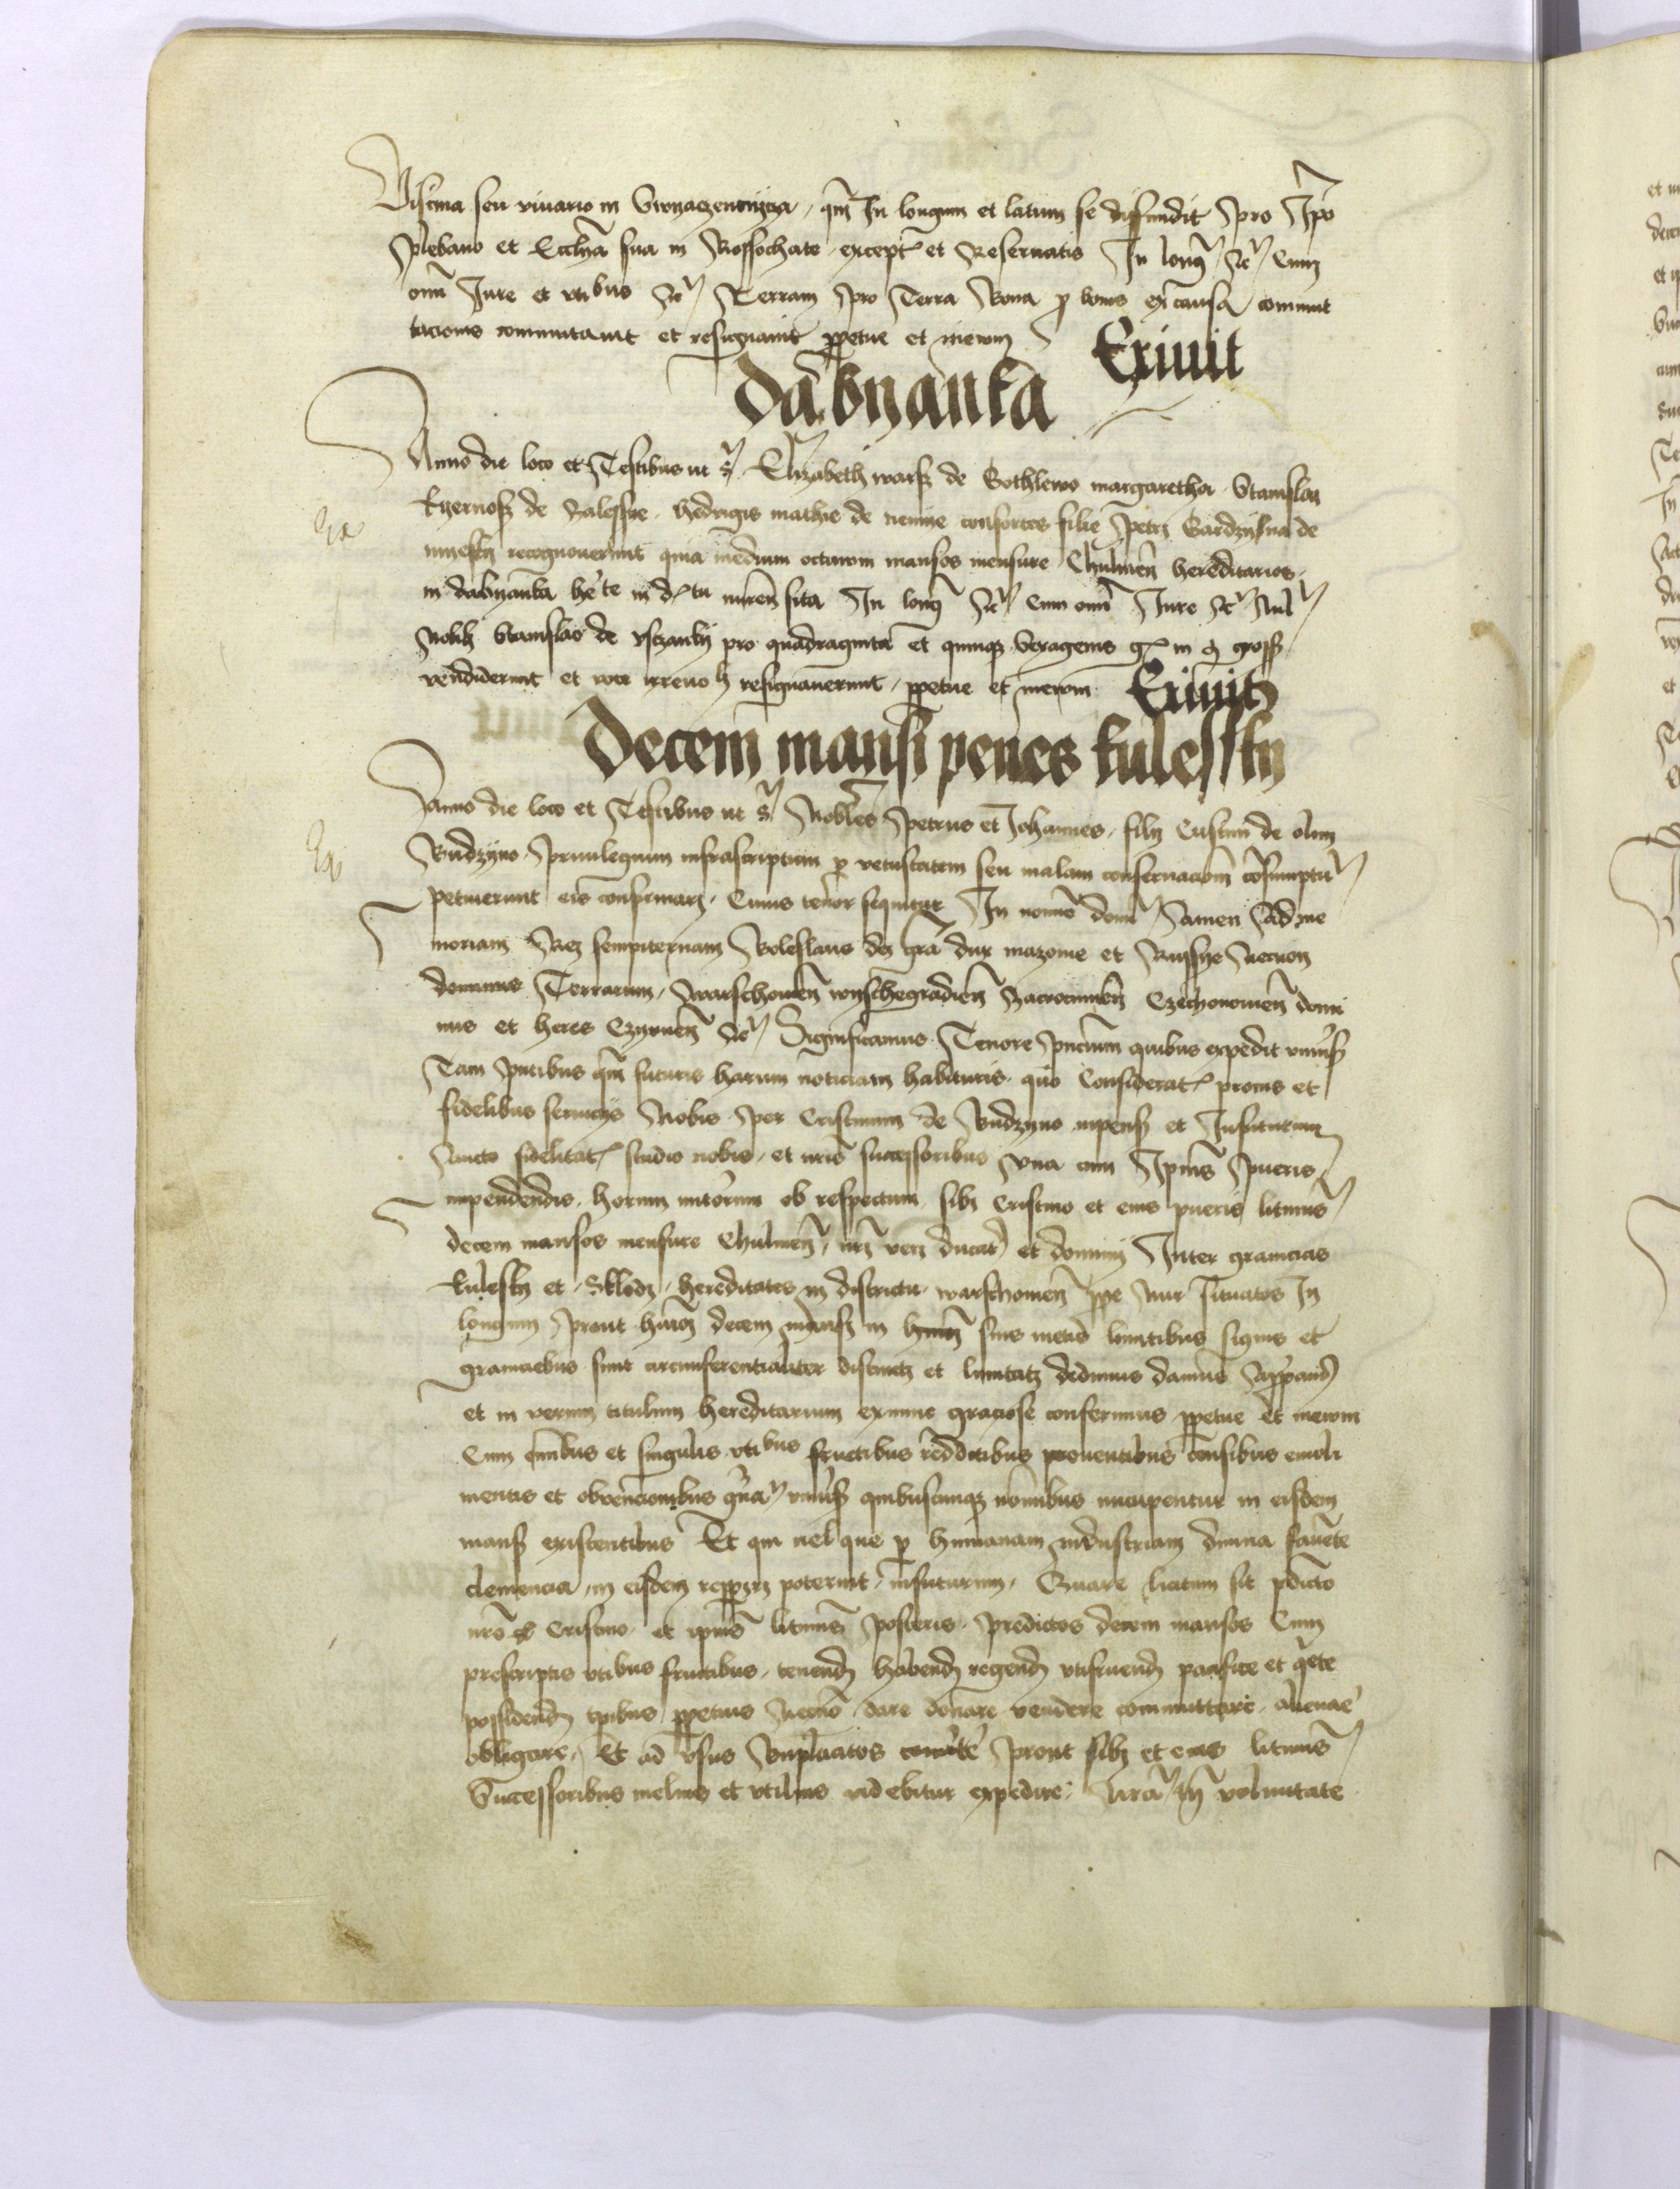 Piscina seu viuario in Swyaczennicza, qm̄ In longum et latum se diffundit pro Ipō
plebano et Ecclīa sua in Rossochate except̄ et Reseruatis In lonḡ &c̄ Cum
om̄i Jure et vtibus &c̄ Terram pro Terra Bona p̱ bonis ex causa commut
tacionis commutauit et resignauit ꝑpetue et in ewm
Exiuit
dabyanka
Anno die loco et Testibus ut s̄ Elizabeth warss de Gothlewo margaretha Stanislay
Kyernoss de Zalessye hedvigis mathie de nemye consortes filie petri Gardzyna de
recognouerunt quia medium octauom mansos mensure Chulmeñ hereditarios
Ex
in dabyanka hete in d̄tu nureñ sita In lonḡ &c̄ Cum om̄i Jure &c̄
Nobili Stanislao de vszanky pro quadraginta et quinqꝫ sexagenis gͬ in gross
vendiderunt et resignauerunt, ꝑpetue et in ewm
Exiuit
Decem mansi penes kulessky
Anno die loco et Testibus ut s̄ Nobiles petrus et Johannes, filii Cristini de olim
Ex
Budzyno Priuilegium infrascriptum p̱ vetustatem seu malam conseruacōm cōsumptū
petiuerunt eis confirmari, Cuius tenor sequitur In nomīe domī Amen Ad me
moriam Rei sempiternam Boleslaus dei grā dux mazouie et Russye Necnon
dominus Terrarum, warschouieñ wyschegradieñ Zacrocimeñ Czechonouieñ domi
nus et heres Czyrneñ &c̄ Significamus Tenore pñcium quibus expedit vniuersis
Tam pñtibus qm̄ futuris harum noticiam habituris quō Considerat̄ pronis et
fidelibus seruicijs Nobis per Cristinum de Budzyno inpensis et Infuturum
aucto fidelitat̄ studio nobis, et nr̄is successoribus vna cum Ipīus pueris
inpendendis, horum intuitum ob respectum sibi Cristino et eius pueris litimis
decem mansos mensure Chulmeñ, nr̄i veri ducat̄ et dominij Inter granicias
Kulesky et Sklody, hereditates in districtu warschouieñ ꝓpe Nur situatos In
longum prout huiꝰ decem mansi in suis metis limitibus signis et
graniciebus sunt circumferentialiter distincti et limitati dedimus damus Appropriaui
et in verum titulum hereditarium exnunc graciose conferimus ꝑpetue et in ewm
Cum om̄ibus et singulis vtibus fructibus redditibus prouentibus censibus emoli
mentis et obuencionibus vniuersis quibuscunqꝫ nōibus nuncupentur in eisdem
mansis existentibus Et qui uel que p̱ humanam industriam diuina fauēte
clemencia, in eisdem repperiri poterunt, infuturum, Quare licitum sit p̄dicto
nrō Cristino et ipīus litimis posteris predictos decem mansos Cum
prescriptis vtibus fructibus, tenendi habendi regendi vtifruendi pacifice et q̄ete
possidendi tp̄ibus ꝑpetuis Necnō dare donare vendere commuttare alienaē
obligare, Et ad vsus Bnplacitos couertē prout sibi et eius litimis
Successoribus melius et vtilius videbitur expedire, voluntate